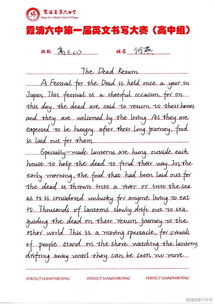 霞浦县第六中学
霞浦六中第一届英文书写大赛（高中组）
班级 高三(1) 姓名
The Dead Return
A Festival for the Dead is held once a year in
Japan. This festival is a cheerful occasion for on
this day, the dead are said to return to their homes
and they are welcomed by the living. As they are
expected to be hungry after their long journey, food
is laid out for them.
Specially-made lanterns are hung outside each
house to help the dead to find their way. In the
early morning, the food that had been laid out for the
dead is thrown into a river or into the sea
as it is considered unlucky for anyone living to eat
it. Thousands of lanterns slowly drift out to sea
guiding the dead on their return journey to the
other world. This is a moving spectacle, for crowds
of people stand on the shore watching the lanterns
drifting away until they can be seen no more.
PERFECT HANDWRITING PERFECT HANDWRITING PERFECT HANDWRITING